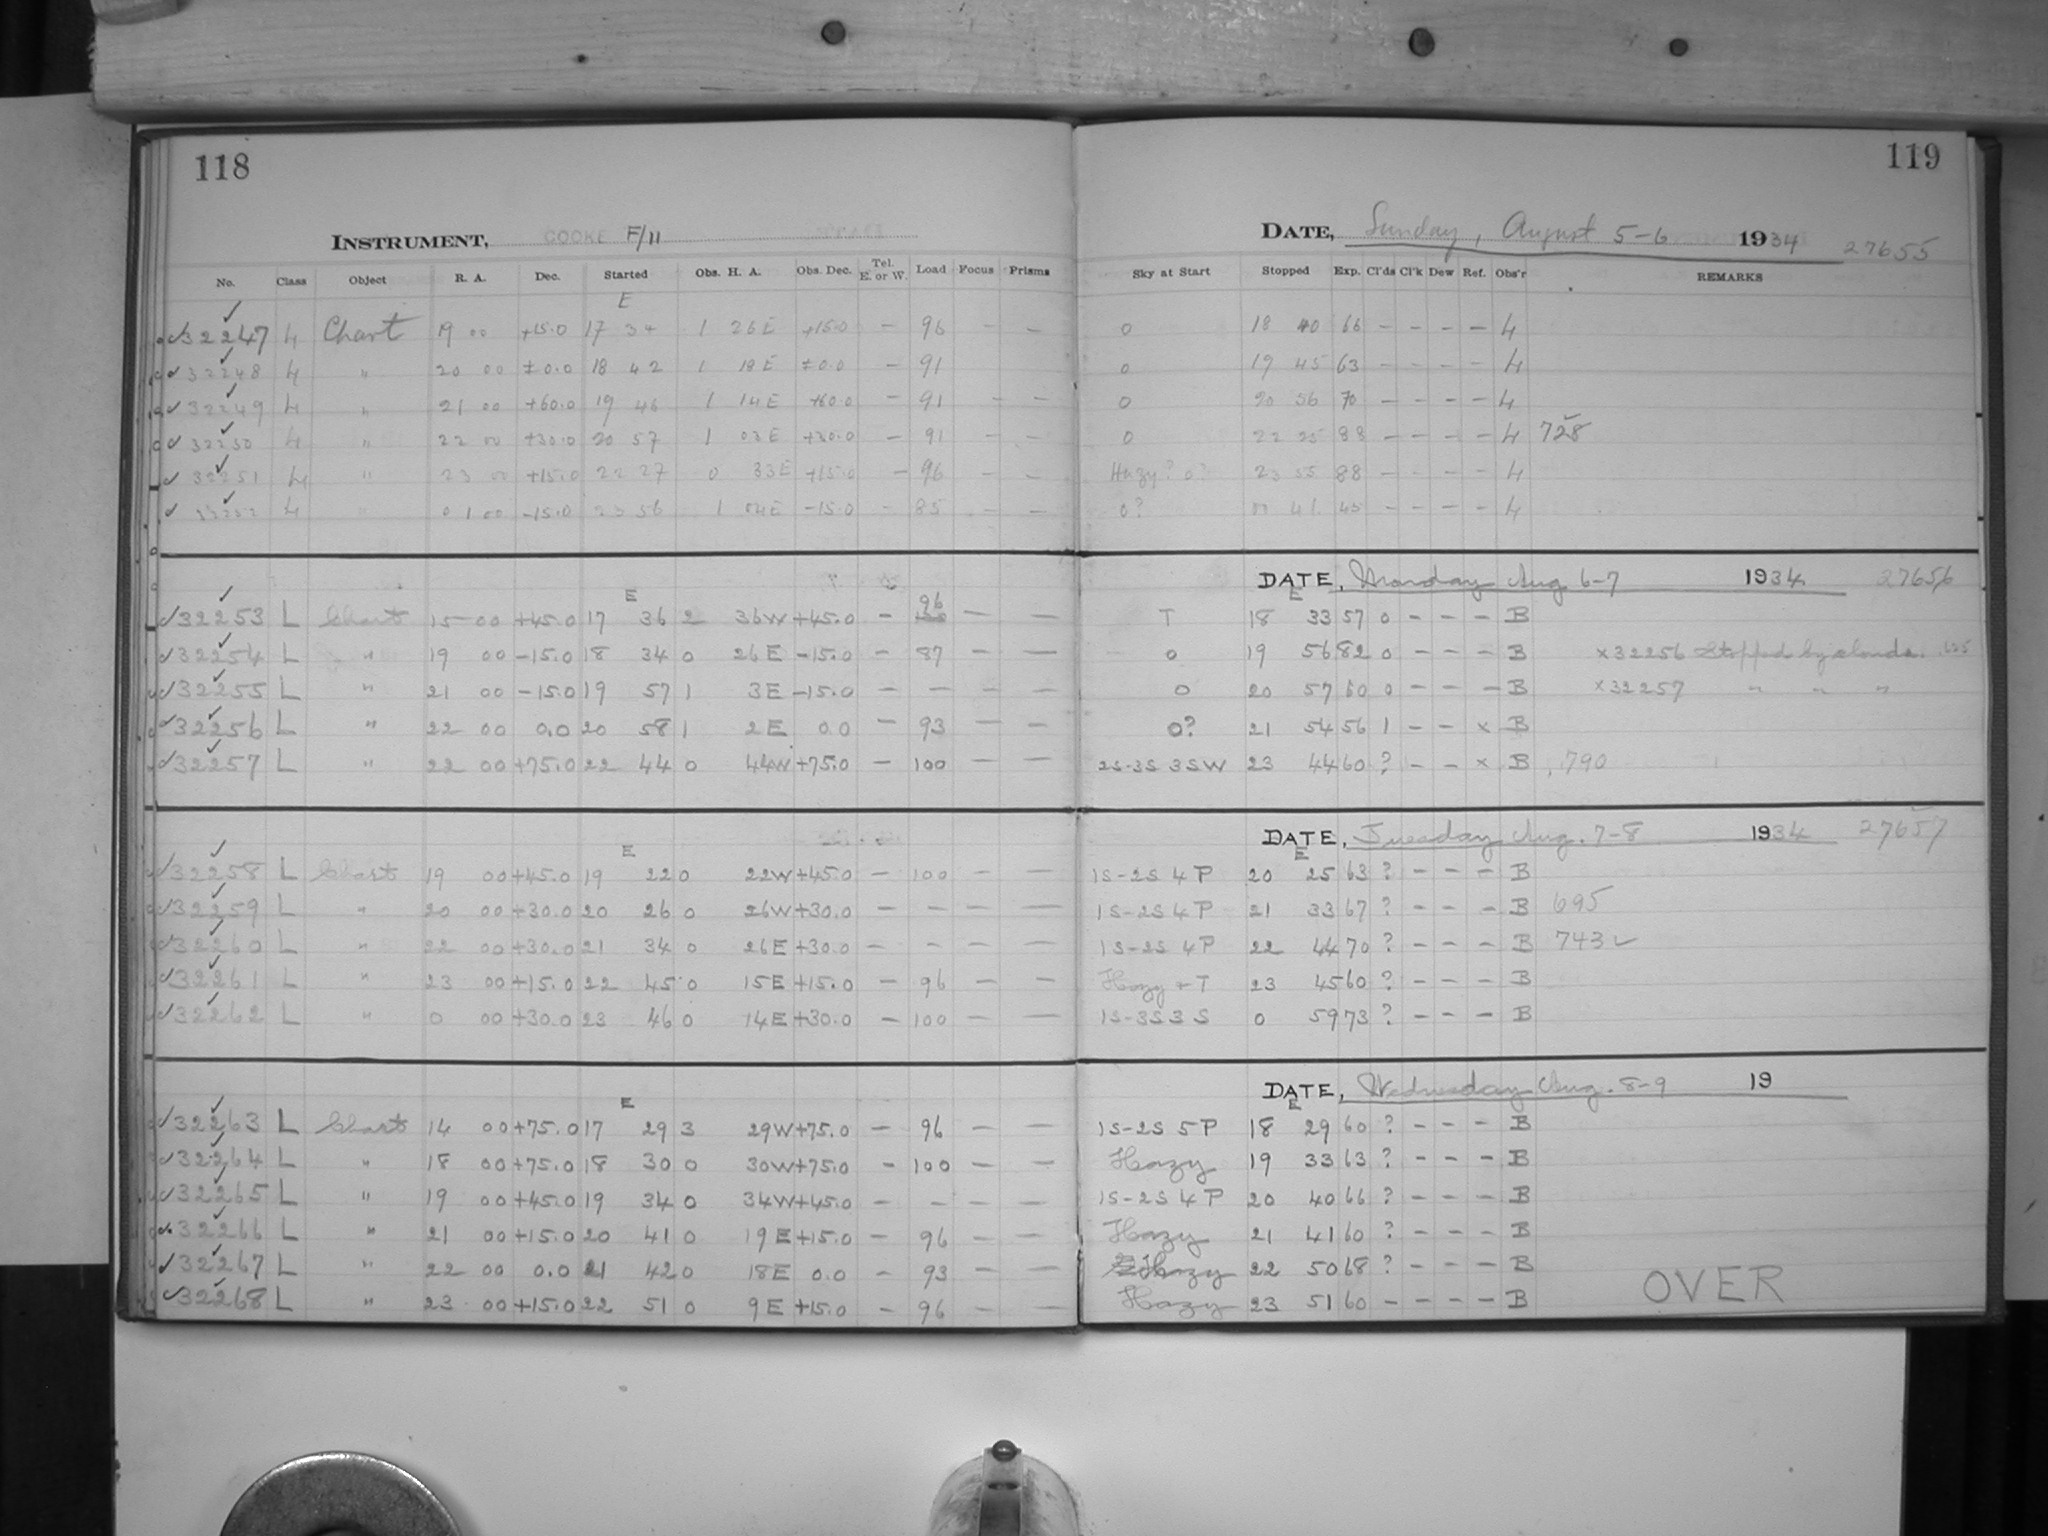 118
INSTRUMENT, COOKE F/11
No. Class Object R. A. Dec. Started Obs. H. A. Obs. Dec. Tel. E. or W. Load Focus Prisms
E
32247 Chart 19 00 +15.0 17 34 1 26 E +15.0 - 96 - -
32248 " 20 00 ±0.0 18 42 1 18 E ±0.0 - 91
32249 " 21 00 +60.0 19 46 1 14 E +60.0 - 91 - -
32250 " 22 00 +30.0 20 57 1 03 E +30.0 - 91 - -
32251 " 23 00 +15.0 22 27 0 33 E +15.0 - 96 - -
32252 " 01 00 -15.0 23 56 1 04 E -15.0 - 85 - -
E
32253 L Chart 15 00 +45.0 17 36 2 36 W +45.0 - 96 - -
32254 L " 19 00 -15.0 18 34 0 26 E -15.0 - 87 - -
32255 L " 21 00 -15.0 19 57 1 3 E -15.0 - - - -
32256 L " 22 00 0.0 20 58 1 2 E 0.0 - 93 - -
32257 L " 22 00 +75.0 22 44 0 44 W +75.0 - 100 - -
E
32258 L Chart 19 00 +45.0 19 22 0 22 W +45.0 - 100 - -
32259 L " 20 00 +30.0 20 26 0 26 W +30.0 - - - -
32260 L " 22 00 +30.0 21 34 0 26 E +30.0 - - - -
32261 L " 23 00 +15.0 22 45 0 15 E +15.0 - 96 - -
32262 L " 0 00 +30.0 23 46 0 14 E +30.0 - 100 - -
E
32263 L Chart 14 00 +75.0 17 29 3 29 W +75.0 - 96 - -
32264 L " 18 00 +75.0 18 30 0 30 W +75.0 - 100 - -
32265 L " 19 00 +45.0 19 34 0 34 W +45.0 - - - -
32266 L " 21 00 +15.0 20 41 0 19 E +15.0 - 96 - -
32267 L " 22 00 0.0 21 42 0 18 E 0.0 - 93 - -
32268 L " 23 00 +15.0 22 51 0 9 E +15.0 - 96 - -
119
DATE, Sunday, August 5-6 1934 27655
Sky at Start Stopped Exp. Cl'ds Cl'k Dew Ref. Obs'r REMARKS
0 18 40 66 - - - -
0 19 45 63 - - - -
0 20 56 70 - - - -
0 22 25 88 - - - - 728
Hazy? 0? 23 55 88 - - - -
0? 00 41 45 - - - -
DATE, Monday Aug 6-7 1934 27656
E
T 18 33 57 0 - - - B
0 19 56 82 0 - - - B x32256 Stopped by clouds.
0 20 57 60 0 - - - B x32257 " " "
0? 21 54 56 1 - - x B
2S-3S 3SW 23 44 60 ? - - x B .790
DATE, Tuesday Aug. 7-8 1934 27657
E
1S-2S 4 P 20 25 63 ? - - - B
1S-2S 4 P 21 33 67 ? - - - B 695
1S-2S 4P 22 44 70 ? - - - B 743
Hazy + T 23 45 60 ? - - - B
1S-3S 3 S 0 59 73 ? - - - B
DATE, Wednesday Aug. 8-9 19
E
1S-2S 5 P 18 29 60 ? - - - B
Hazy 19 33 63 ? - - - B
1S-2S 4 P 20 40 66 ? - - - B
Hazy 21 41 60 ? - - - B
Hazy 22 50 68 ? - - - B
Hazy 23 51 60 - - - - B
OVER